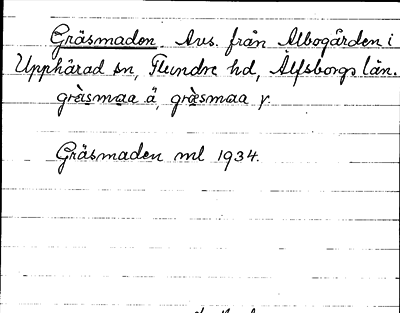 Gräsmaden. Avs. från Albogården i
Upphärad sn, Flundre hd, Älfsborgs län.
gràsmaa ä, græ̀smaa y.
Gräsmaden ml 1934.